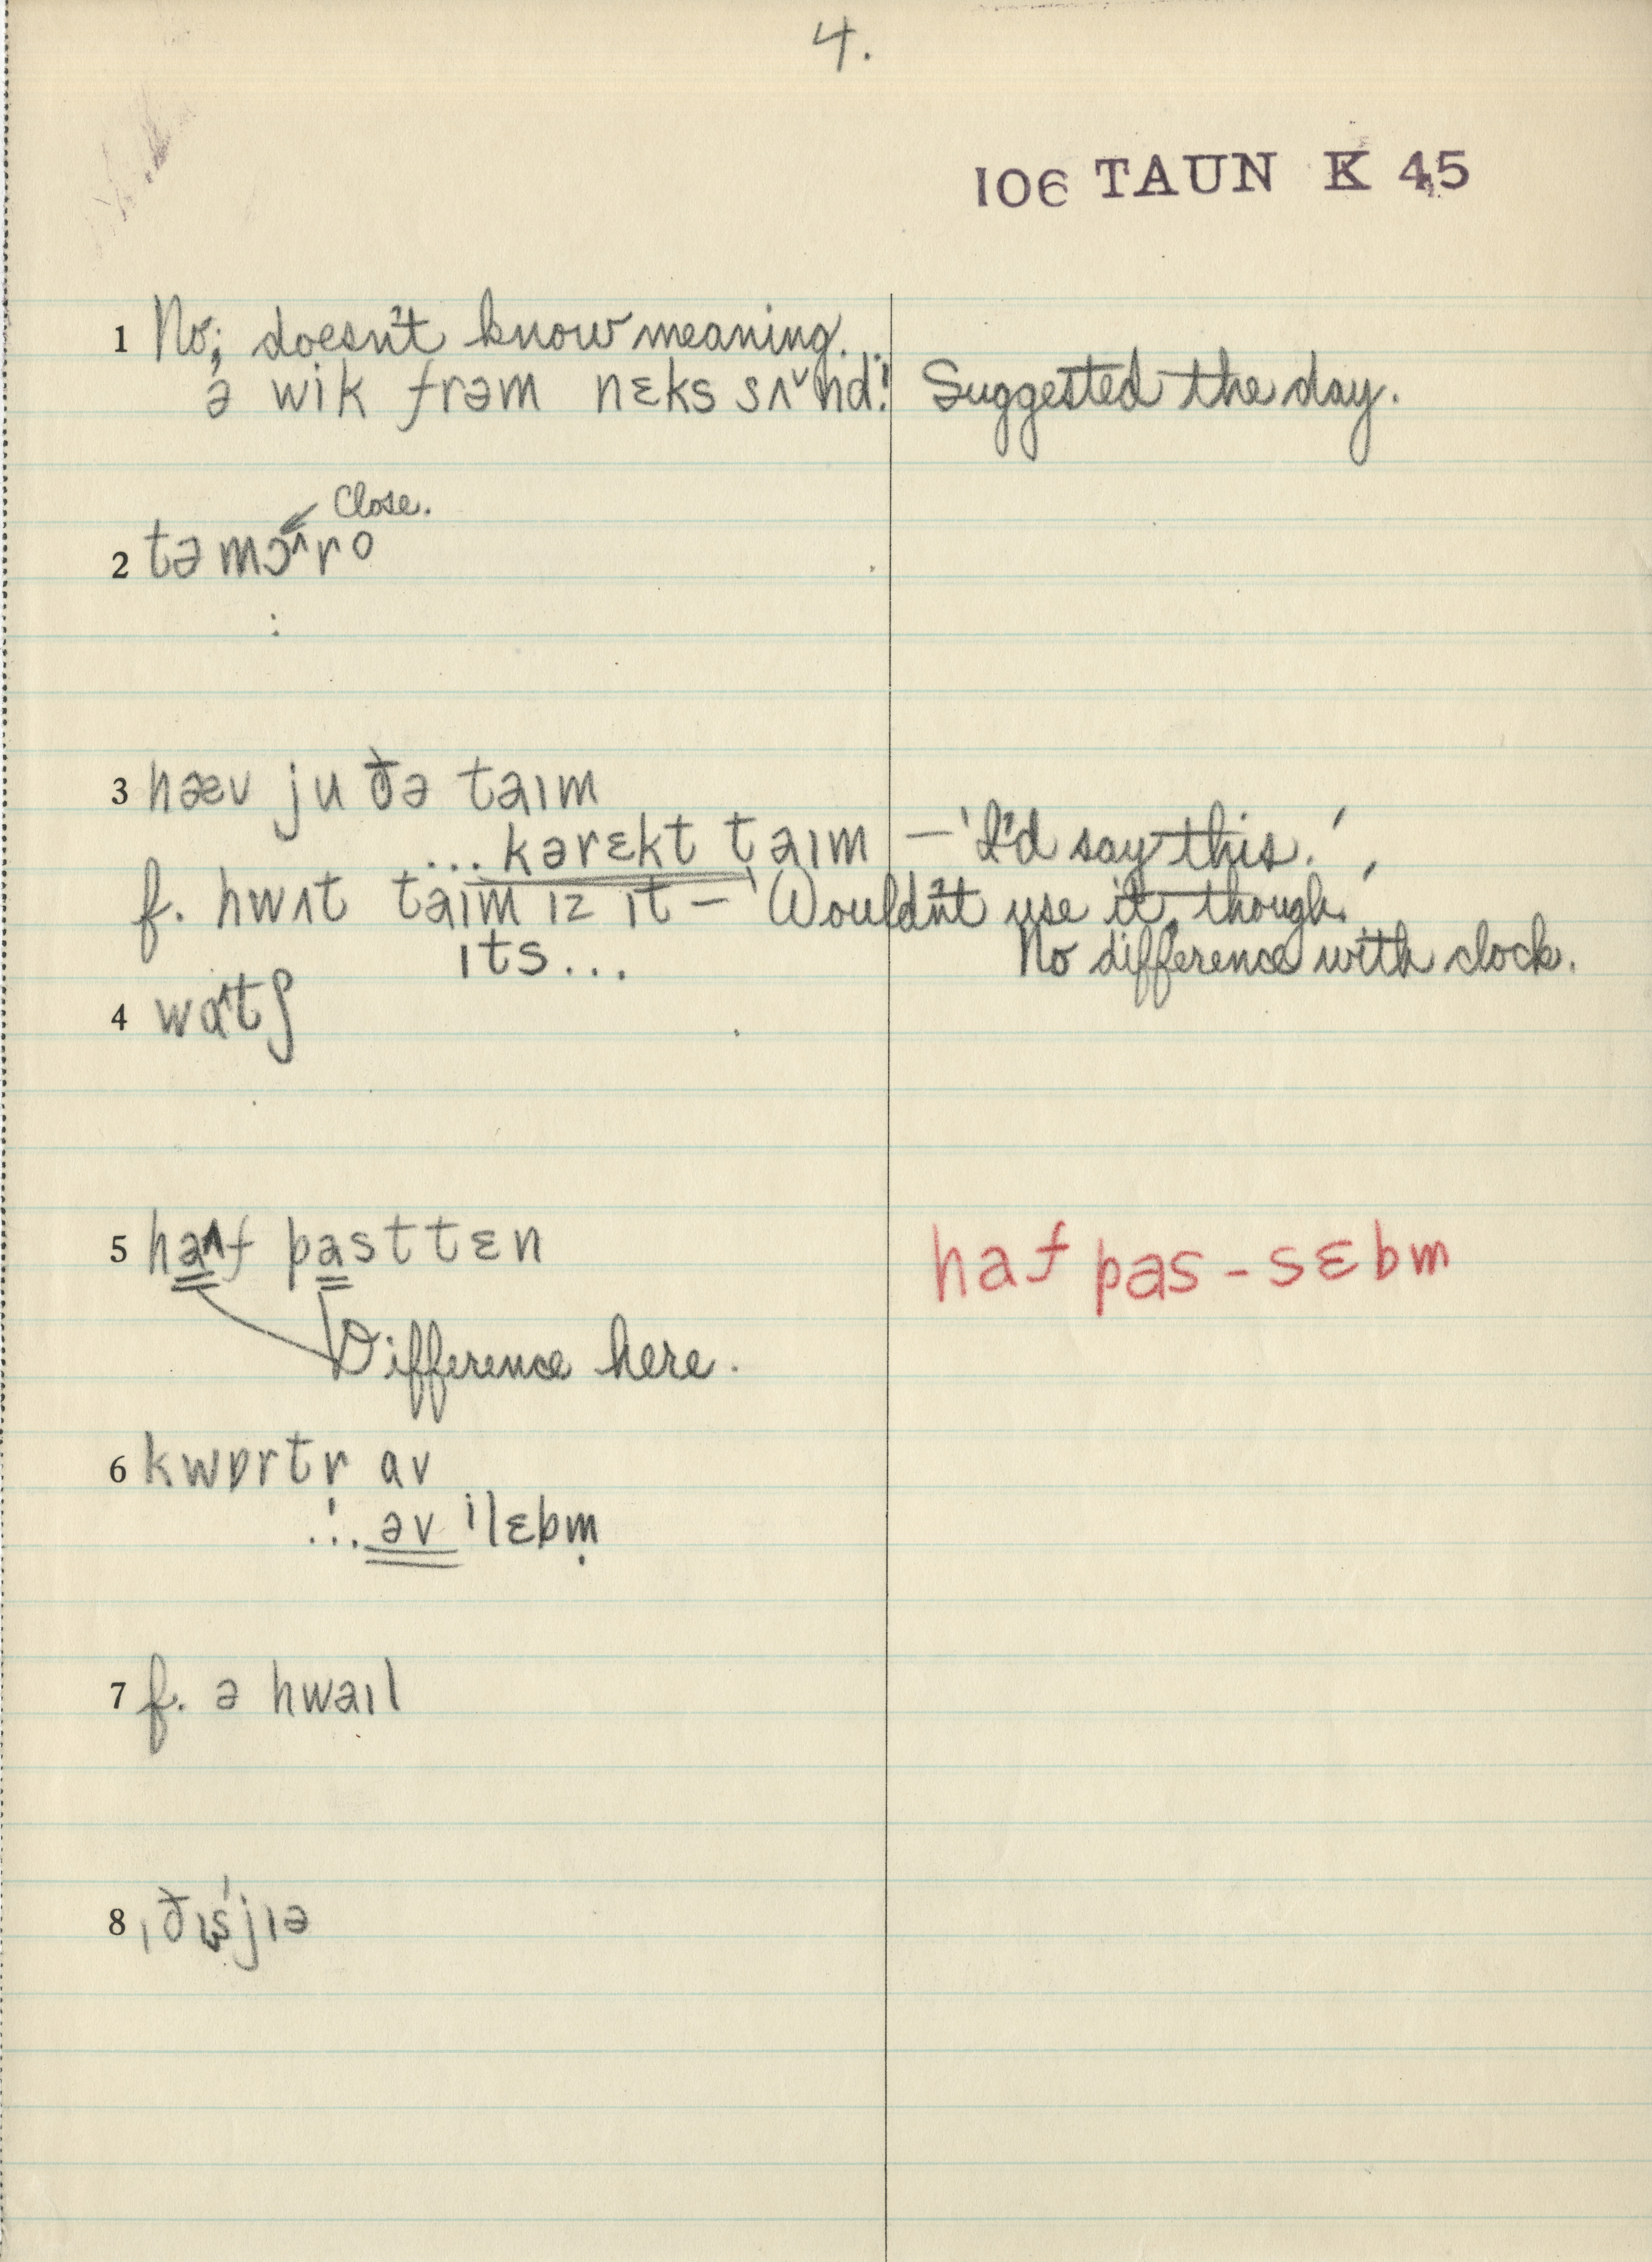 4.
106 TAUN K 45
1 No; doesn't know meaning.
ə wik frəm nɛks sʌ˅nd! Suggested the day.
Close.
2 təmɔ^ro
3 hæv ju ðə taɪm
... kərɛkt taɪm – 'I'd say this.'
f. hwʌt taɪm ɪz ɪt – 'Wouldn't use it, though.'
ɪts... No difference with clock.
4 wɑ^tʃ
5 ha^f past tɛn haf pas-sɛbm
Difference here.
6 kwɒrtr av
... əv ilɛbm̩
7 f. ə hwaɪl
8 ˌðɪsˈjɪə